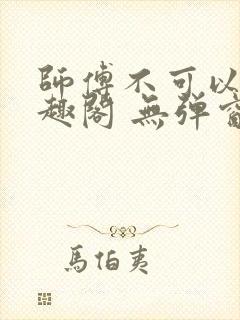 師傅不可以
趣閣 無彈
馬伯夷